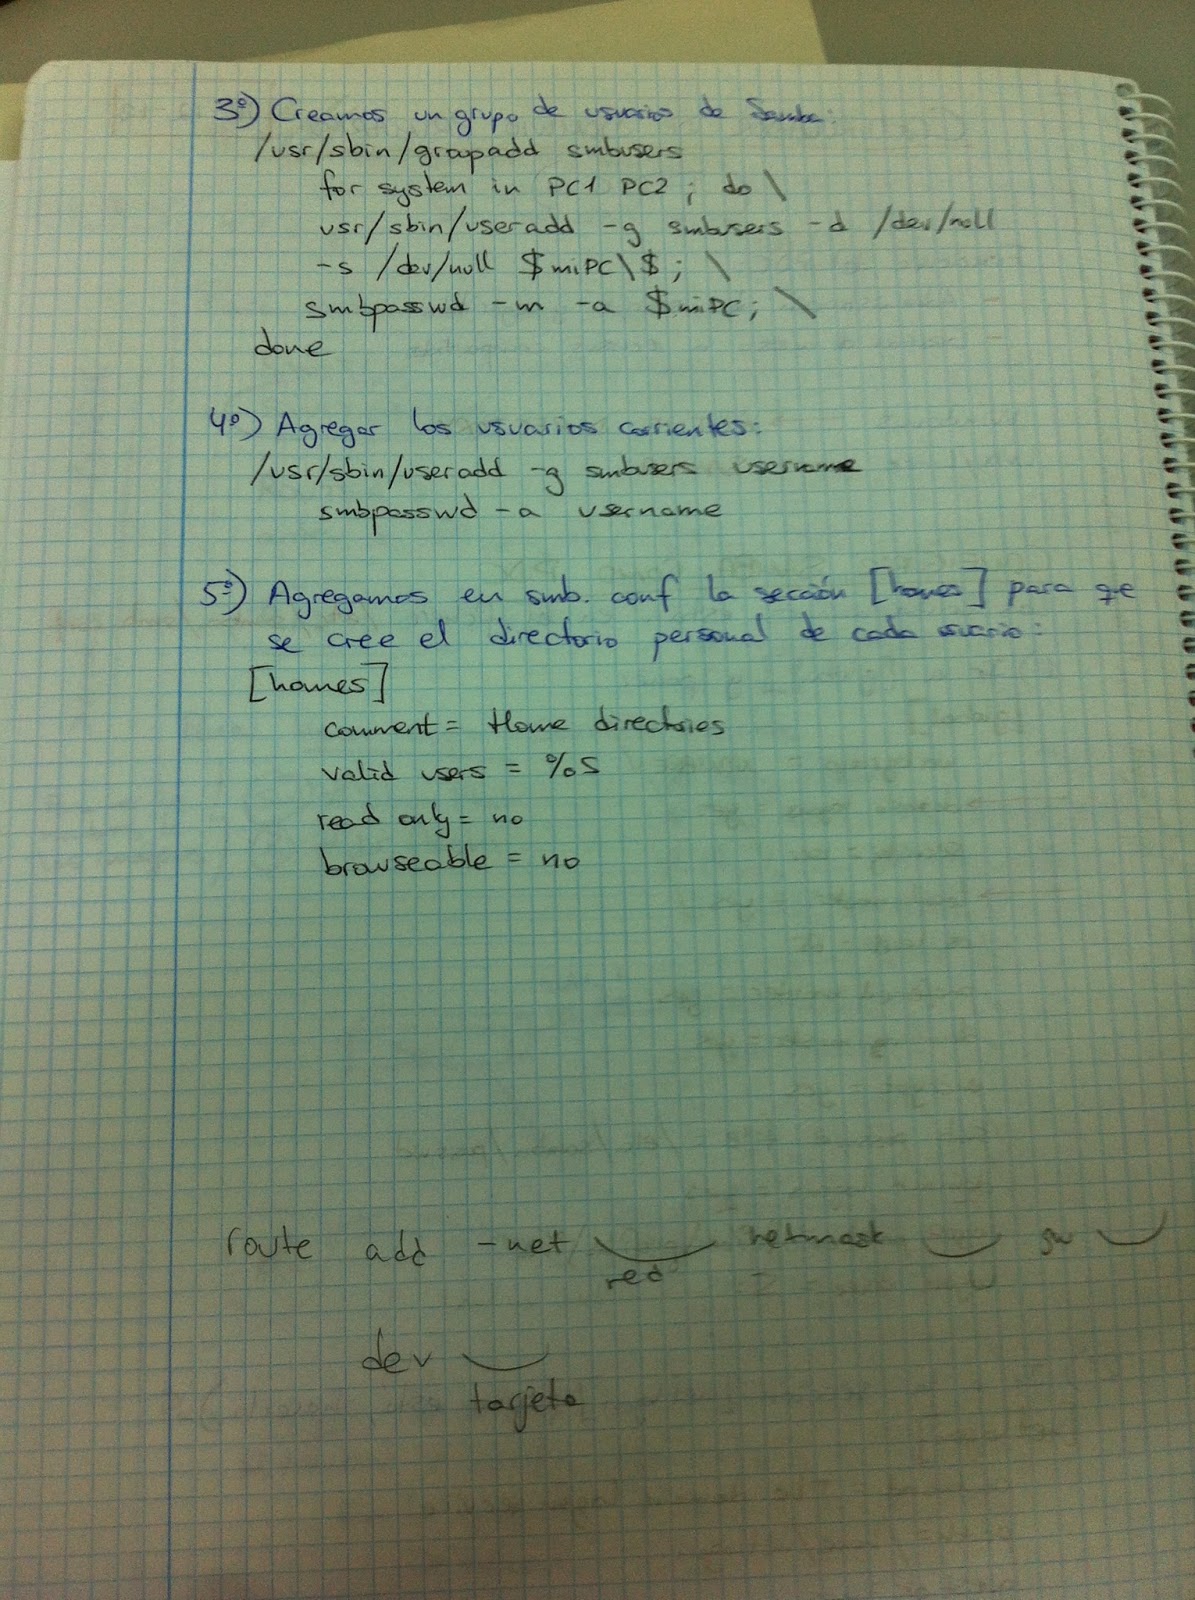 3º) Creamos un grupo de usuarios de Samba:
/usr/sbin/groupadd smbusers
for system in PC1 PC2 ; do \
usr/sbin/useradd -g smbusers -d /dev/null
-s /dev/null $miPC\$ ; \
smbpasswd -m -a $miPC; \
done
4º) Agregar los usuarios corrientes:
/usr/sbin/useradd -g smbusers username
smbpasswd -a username
5º) Agregamos en smb.conf la sección [homes] para qe
se cree el directorio personal de cada usuario:
[homes]
comment = Home directories
valid users = %S
read only = no
browseable = no
route add -net netmask gw
red
dev
tarjeta